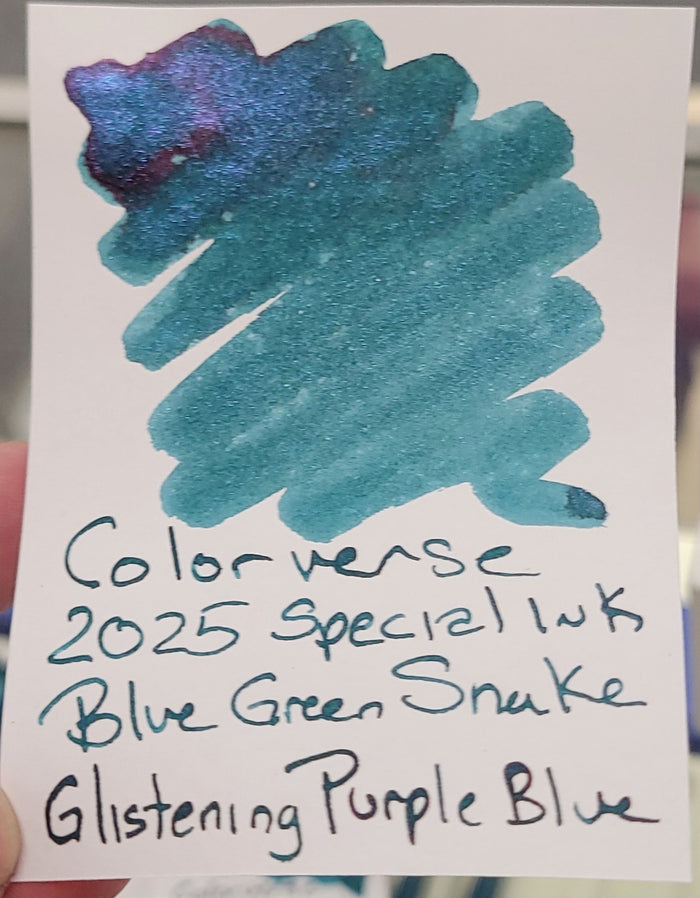 Colorverse
2025 Special Ink
Blue Green Snake
Glistening Purple Blue